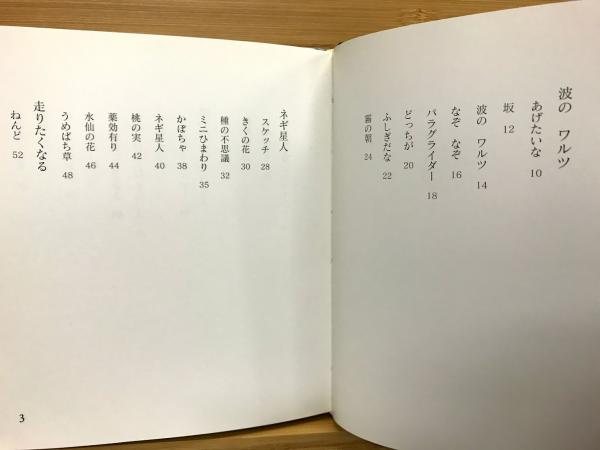 波の　ワルツ
あげたいな　10
坂　12
波の　ワルツ　14
なぞ　なぞ　16
パラグライダー　18
どっちが　20
ふしぎだな　22
霧の朝　24
ネギ星人
スケッチ　28
きくの花　30
種の不思議　32
ミニひまわり　35
かぼちゃ　38
ネギ星人　40
桃の実　42
薬効有り　44
水仙の花　46
うめばち草　48
走りたくなる
ねんど　52
3